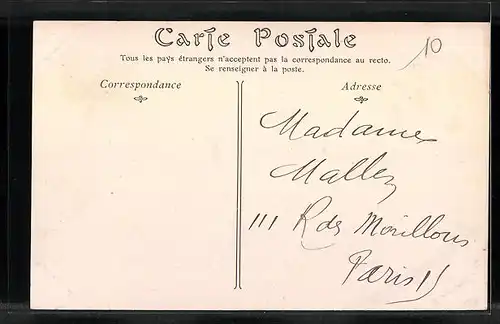 Carte Postale
10
Tous les pays étrangers n'acceptent pas la correspondance au recto.
Se renseigner à la poste.
Correspondance
Adresse
Madame
Mallez
111 R des Morillons
Paris 15